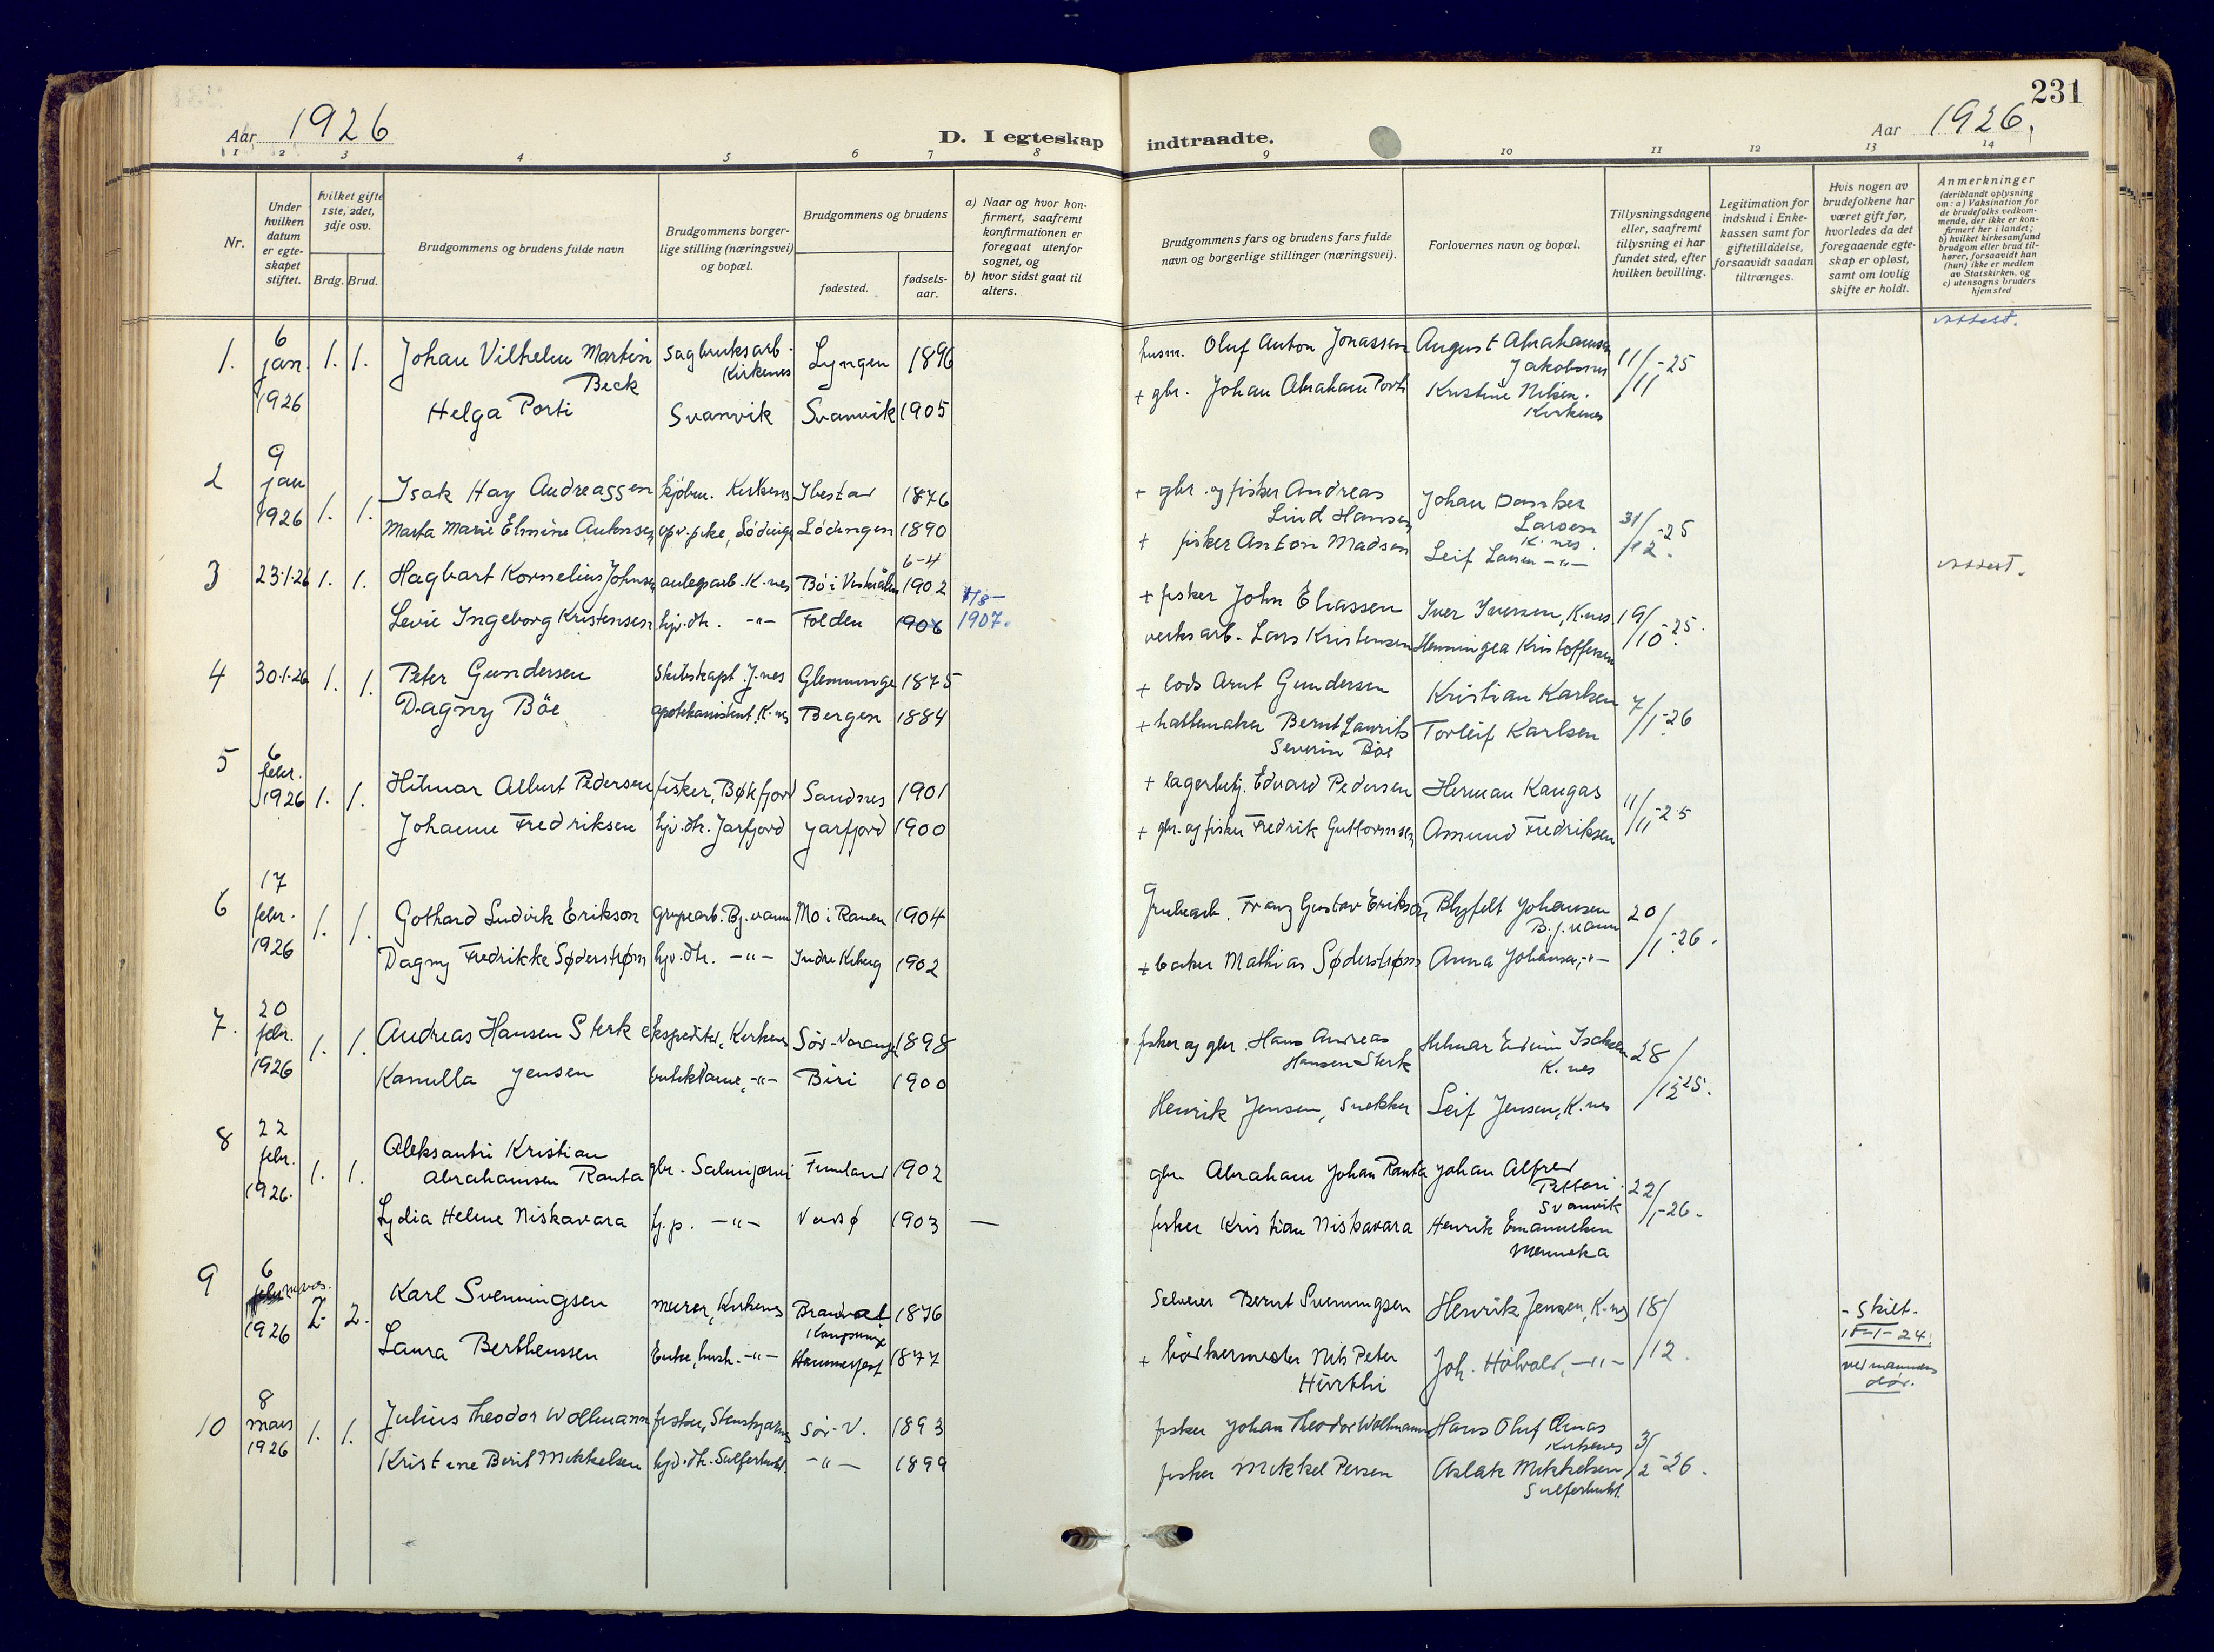 231
Aar 1926
D. I egteskap indtraadte.
Aar 1926.
1 2 3 4 5 6 7 8 9 10 11 12 13 14
Nr.
Under hvilken datum er egteskapet stiftet.
hvilket gifte 1ste, 2det, 3dje osv.
Brdg. Brud.
Brudgommens og brudens fulde navn
Brudgommens borgerlige stilling (næringsvei) og bopæl.
Brudgommens og brudens
fødested.
fødselsaar.
a) Naar og hvor konfirmert, saafremt konfirmationen er foregaat utenfor sognet, og
b) hvor sidst gaat til alters.
Brudgommens fars og brudens fars fulde navn og borgerlige stillinger (næringsvei).
Forlovernes navn og bopæl.
Tillysningsdagene eller, saafremt tillysning ei har fundet sted, efter hvilken bevilling.
Legitimation for indskud i Enkekassen samt for giftetilladelse, forsaavidt saadan tiltrænges.
Hvis nogen av brudefolkene har været gift før, hvorledes da det foregaaende egteskap er opløst, samt om lovlig skifte er holdt.
Anmerkninger
(deriblandt oplysning om: a) Vaksination for de brudefolks vedkommende, der ikke er konfirmert her i landet; b) hvilket kirkesamfund brudgom eller brud tilhører, forsaavidt han (hun) ikke er medlem av Statskirken, og c) utensogns bruders hjemsted
1. 6 jan. 1926 1. 1. Johan Vilhelm Martin Beck sagbruksarb. Kirkenes Lyngen 1896 husm. Oluf Anton Jonassen August Abrahamsen Jakobsnes 11/11-25 Attest.
Helga Porti Svanvik Svanvik 1905 + gbr. Johan Abraham Porti Kristine Nilsen. Kirkenes
2 9 jan 1926 1. 1. Isak Hay Andreassen kjøbm. Kirkenes Ibestad 1876 + gbr. og fisker Andreas Lind Hansen Johan Danker Larsen K.nes. 31/12-25
Marta Marie Elmine Antonsen Lødingen Lødingen 1890 + fisker Anton Madsen Leif Larsen -"-
3 23.1.26 1. 1. Hagbart Kornelius Johnsen anlegsarb. K.nes Bø i Vesterålen 6-4 1902 + fisker John Eliassen Iver Iversen, K.nes. 19/10-25. Attest.
Levie Ingeborg Kristensen hjv. dtr. -"- Folden 1906 1907. verksarb. Lars Kristensen Henningea Kristoffersen
4 30.1.26 1. 1. Peter Gundersen Skibskapt. J.nes Glemminge 1875 + lods Arnt Gundersen Kristian Karlsen 7/1-26
Dagny Böe K.nes Bergen 1884 + hattemaker Bernt Laurits Severin Böe Torleif Karlsen
5 6 febr. 1926 1. 1. Hilmar Albert Pedersen fisker, Bøkfjord Sandnes 1901 + lagerbetj. Edvard Pedersen Herman Kangas 11/11-25
Johanne Fredriksen hjv. dtr. Jarfjord Jarfjord 1900 + gbr. og fisker Fredrik Guttormsen Asmund Fredriksen
6 17 febr. 1926 1. 1. Gothard Ludvik Erikson grubearb. Bj.vann Mo i Ranen 1904 Grubearb. Franz Gustav Erikson Blyfelt Johansen B.j.vann 20/1-26.
Dagny Fredrikke Søderstrøm hjv. dtr. -"- Indre Kiberg 1902 + baker Mathias Søderstrøm Anna Johansen, -"-
7. 20 febr. 1926 1. 1. Andreas Hansen Sterk ekspeditør, Kirkenes Sör-Varanger 1898 fisker og gbr. Hans Andreas Hansen Sterk Hilmar Edvin Isaksen K.nes 28/12-25.
Kamilla Jensen butikdame, -"- Biri 1900 Henrik Jensen, snekker Leif Jensen, K.nes
8 22 febr. 1926. 1. 1. Aleksantri Kristian Abrahamsen Ranta gbr. Salmijærvi Finnland 1902 gbr. Abraham Johan Ranta Johan Alfred Pettari. Svanvik 22/1-26.
Lydia Helene Niskavara t.j.p. -"- Vadsø 1903 — fisker Kristian Niskavara Henrik Emanuelsen Mennika
9 6 mars. 1926 2. 2. Karl Svenningsen murer, Kirkenes Brandval Kongsvinge 1876 Selveier Bernt Svenningsen Henrik Jensen, K.nes 18/12. - skilt. 18-1-24.
Laura Berthenssen Enke, hush. -"- Hammerfest 1877 + Nils Peter Joh. Hölvold, -"- ved mannens död.
10 8 mars 1926 1. 1. Julius Theodor Wollmann fisker, Sör-V. 1893 fisker Johan Theodor Wollmann Hans Oluf Kirkenes 3/2-26.
Kristine Berit Mikkelsen hjv. dtr. Sulferbukt. -"- 1899 fisker Mikkel Persen Aslak Mikkelsen Sulferbukt